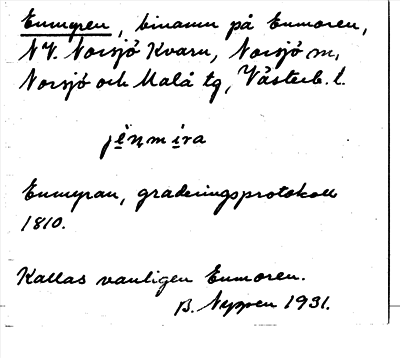 Enmyren, binamn på Enmoren,
NV. Norsjö Kvarn, Norsjö sn,
Norsjö och Malå tg, Västerb. l.
jènmìra
Enmyran, graderingsprotokoll
1810.
Kallas vanligen Enmoren.
B. Nyppen 1931.